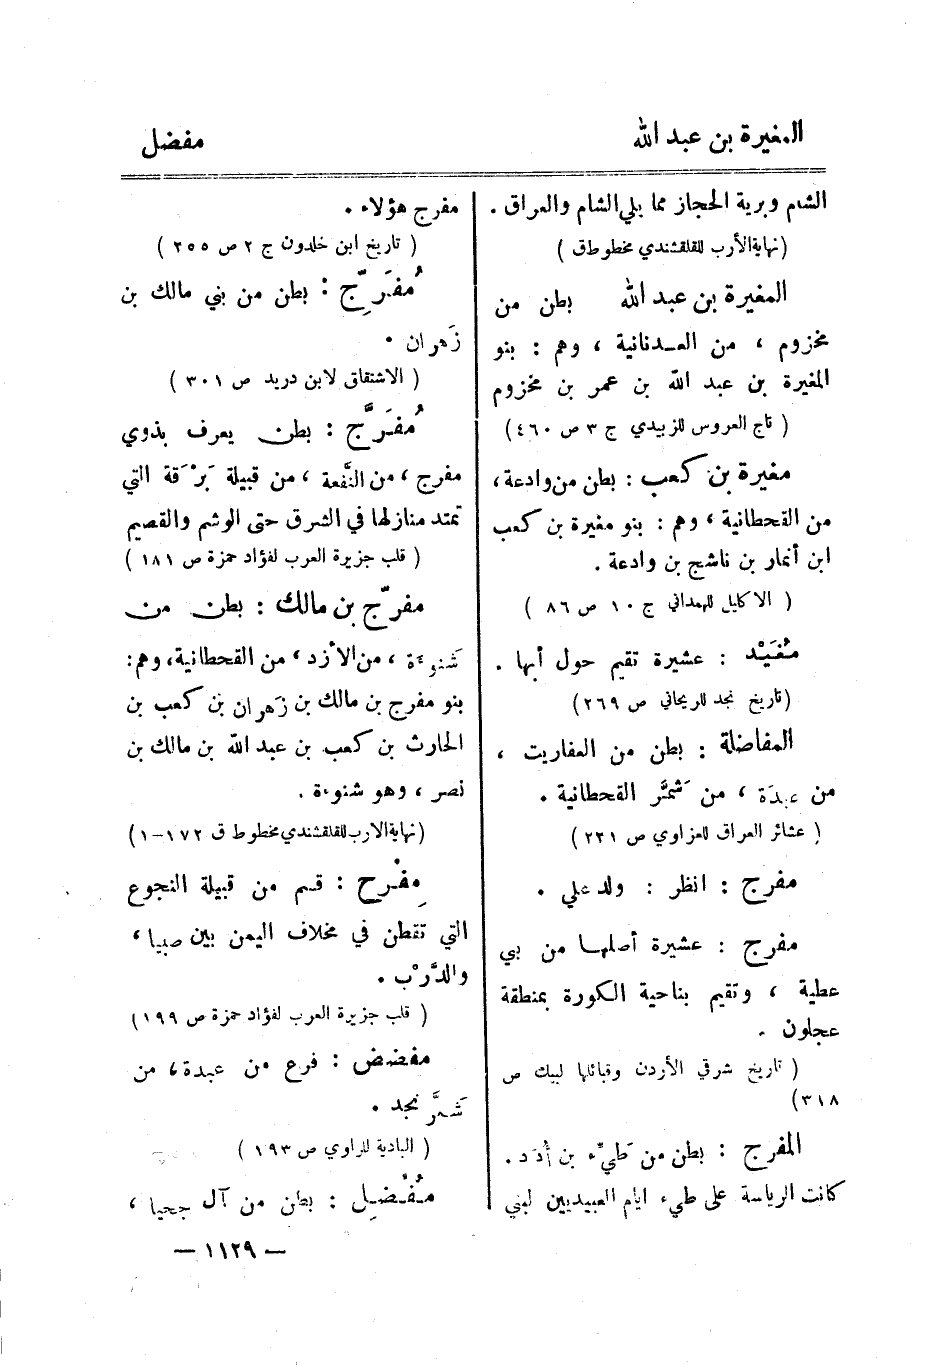 المغيرة بن عبد الله
مفضل
الشام وبرية الحجاز مما يلي الشام والعراق .
(نهاية الأرب للقلقشندي مخطوط ق )
المغيرة بن عبد الله بطن من
مخزوم ، من العدنانية ، وهم : بنو
المغيرة بن عبد الله بن عمر بن مخزوم
( تاج العروس للزبيدي ج ٣ ص ٤٦٠)
مغيرة بن كعب : بطن من وادعة ،
من القحطانية ، وهم : بنو مغيرة بن كعب
ابن أنمار بن ناشج بن وادعة .
( الاكليل للهمداني ج ١٠ ص ٨٦ )
مُغَيْد : عشيرة تقيم حول أبها .
(تاريخ نجد للريحاني ص ٢٦٩)
المفاضلة : بطن من العفاريت ،
من عبدَة ، من شَمَّر القحطانية .
( عشائر العراق للعزاوي ص ٢٣١)
مفرج : انظر : ولد علي .
مفرج : عشيرة أصلها من بني
عطية ، وتقيم بناحية الكورة بمنطقة
عجلون .
( تاريخ شرقي الأردن وقبائلها لبيك ص
٣١٨)
المفرج : بطن من طَيِّء بن أُدَد .
كانت الرياسة على طيء ايام العبيديين لبني
مفرج هؤلاء .
( تاريخ ابن خلدون ج ٢ ص ٢٥٥ )
مُفَرِّج : بطن من بني مالك بن
زَهران .
( الاشتقاق لابن دريد ص ٣٠١ )
مُفَرَّج : بطن يعرف بذوي
مفرج ، من النُّفعة ، من قبيلة بَرْقة التي
تمتد منازلها في الشرق حتى الوشم والقصيم
( قلب جزيرة العرب لفؤاد حمزة ص ١٨١ )
مفرّج بن مالك : بطن من
شَنوءة ، من الأزد ، من القحطانية ، وهم :
بنو مفرج بن مالك بن زَهران بن كعب بن
الحارث بن كعب بن عبد الله بن مالك بن
نصر ، وهو شنوءة .
(نهاية الارب للقلقشندي مخطوط ق ١٧٢-١)
مِفْرح : قسم من قبيلة النجوع
التي تقطن في مخلاف اليمن بين صبيا ،
والدَّرْب .
( قلب جزيرة العرب لفؤاد حمزة ص ١٩٩)
مفضض : فرع من عبدة ، من
شَمَّر نجد .
( البادية للراوي ص ١٩٣ )
مُفْضِل : بطن من آل جحيا ،
— ١١٢٩ —